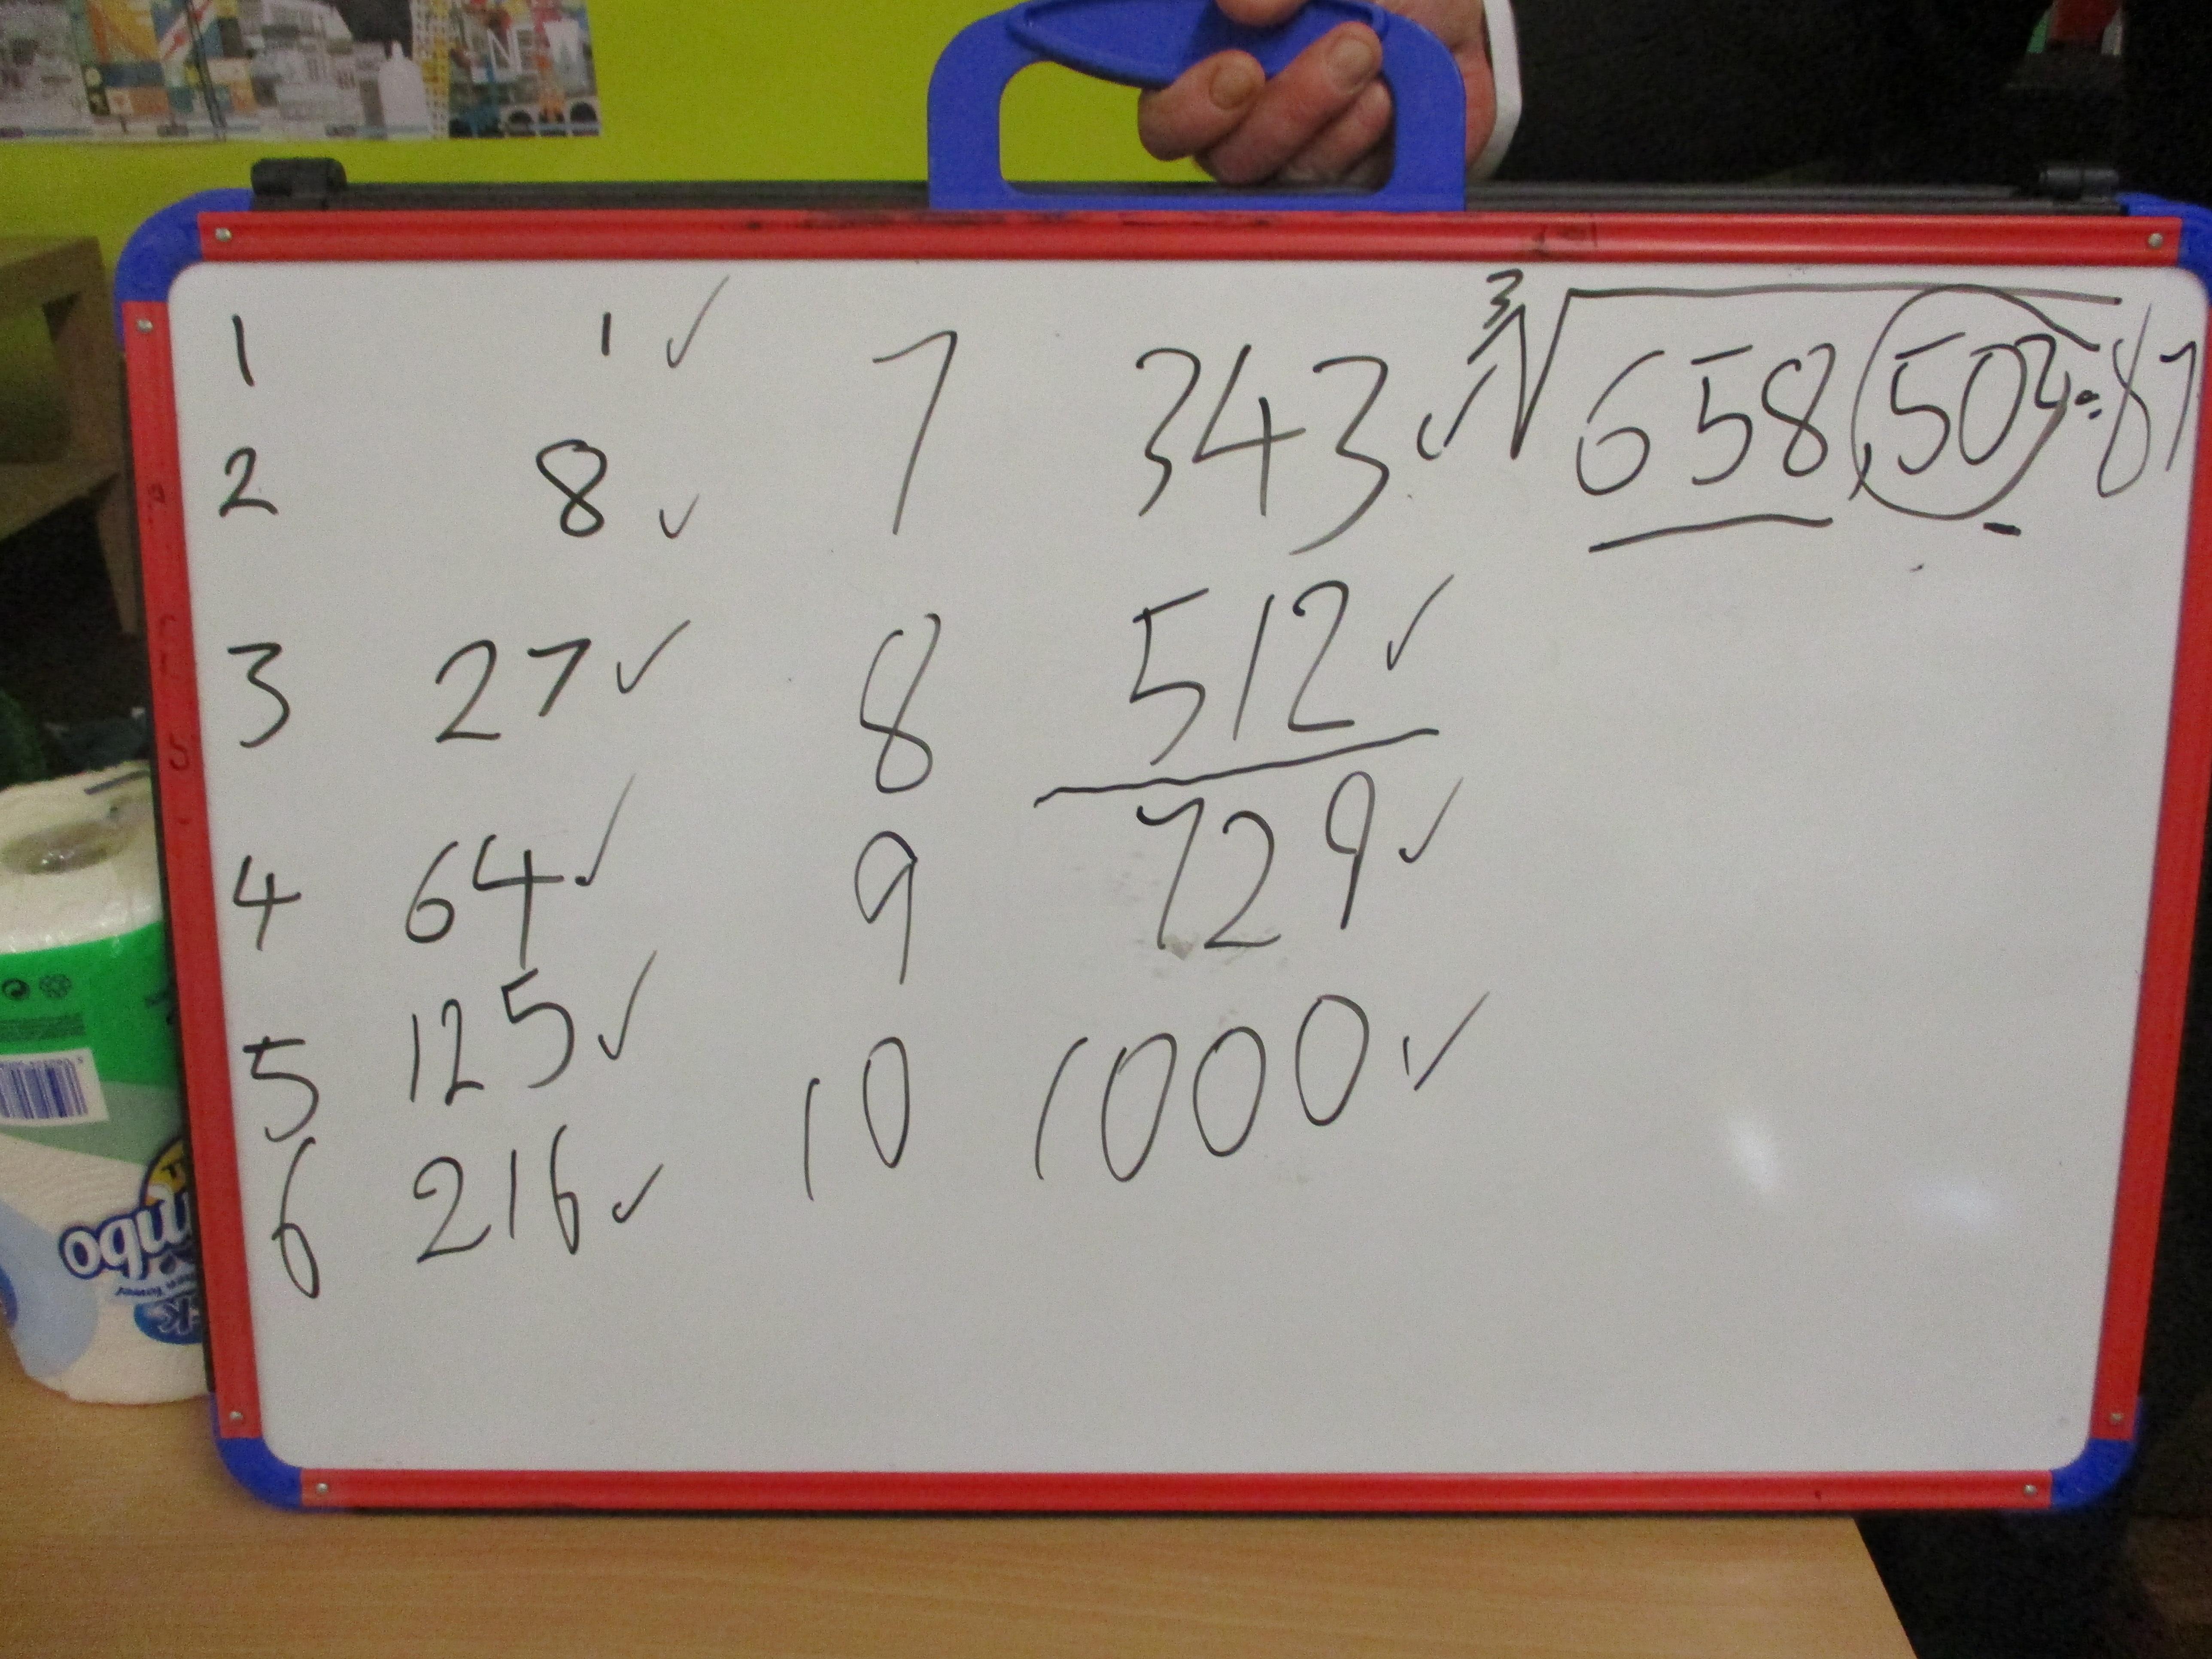 1 1 ✓
2 8 ✓
3 27 ✓
4 64 ✓
5 125 ✓
6 216 ✓
7 343 ✓
8 512 ✓
9 729 ✓
10 1000 ✓
∛658,503=87